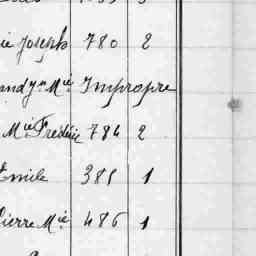 ie Joseph 780 2
andyn Mie Impropre
Mie Frédéric 784 2
Emile 385 1
Pierre Mie 486 1